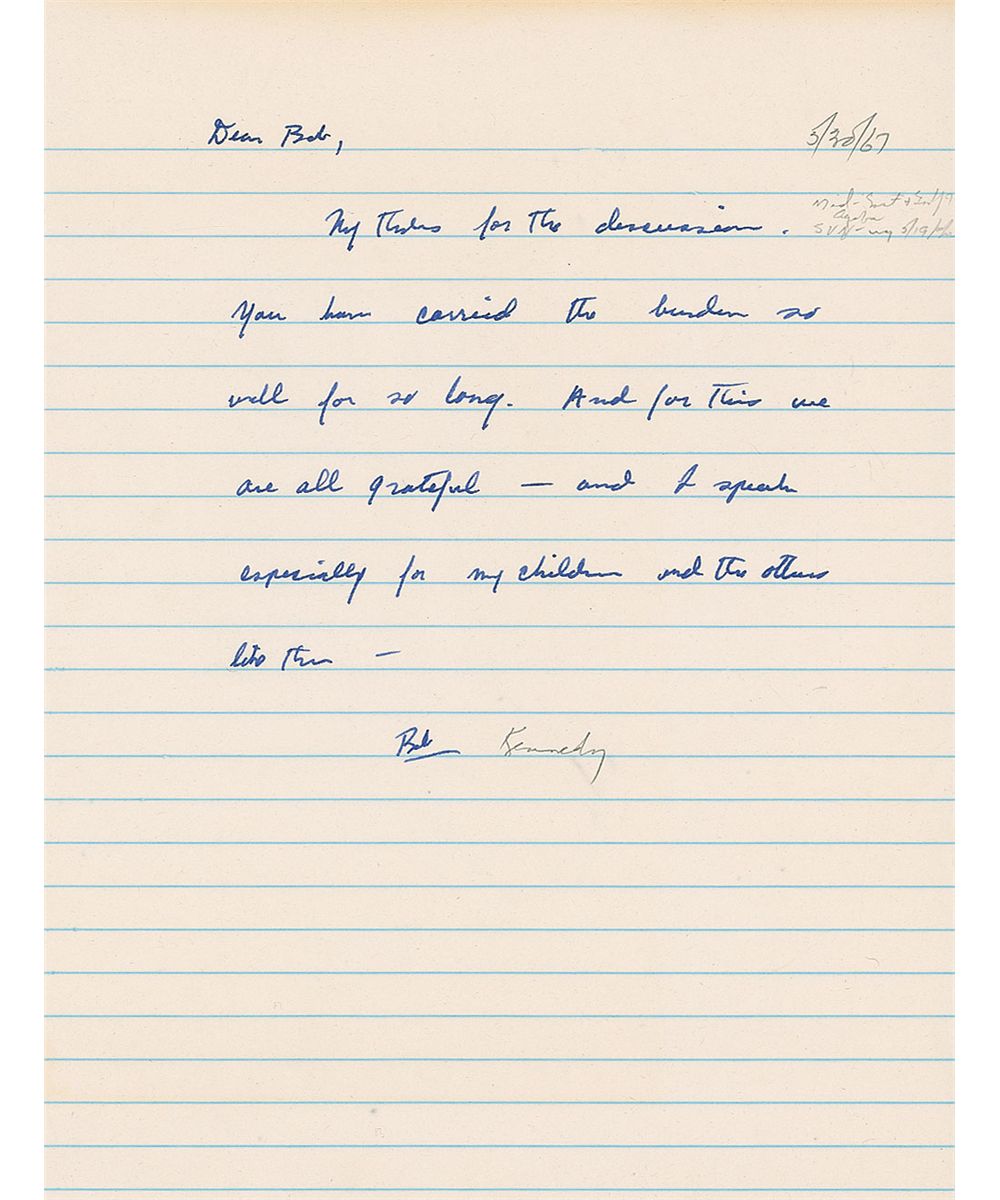 Dear Bob,
5/30/67
My thanks for the discussion.
Mid-East + Gulf of
Aqaba
SVN - my 5/19
You have carried the burden so
well for so long. And for this we
are all grateful — and I speak
especially for my children and the others
like them —
Bob Kennedy